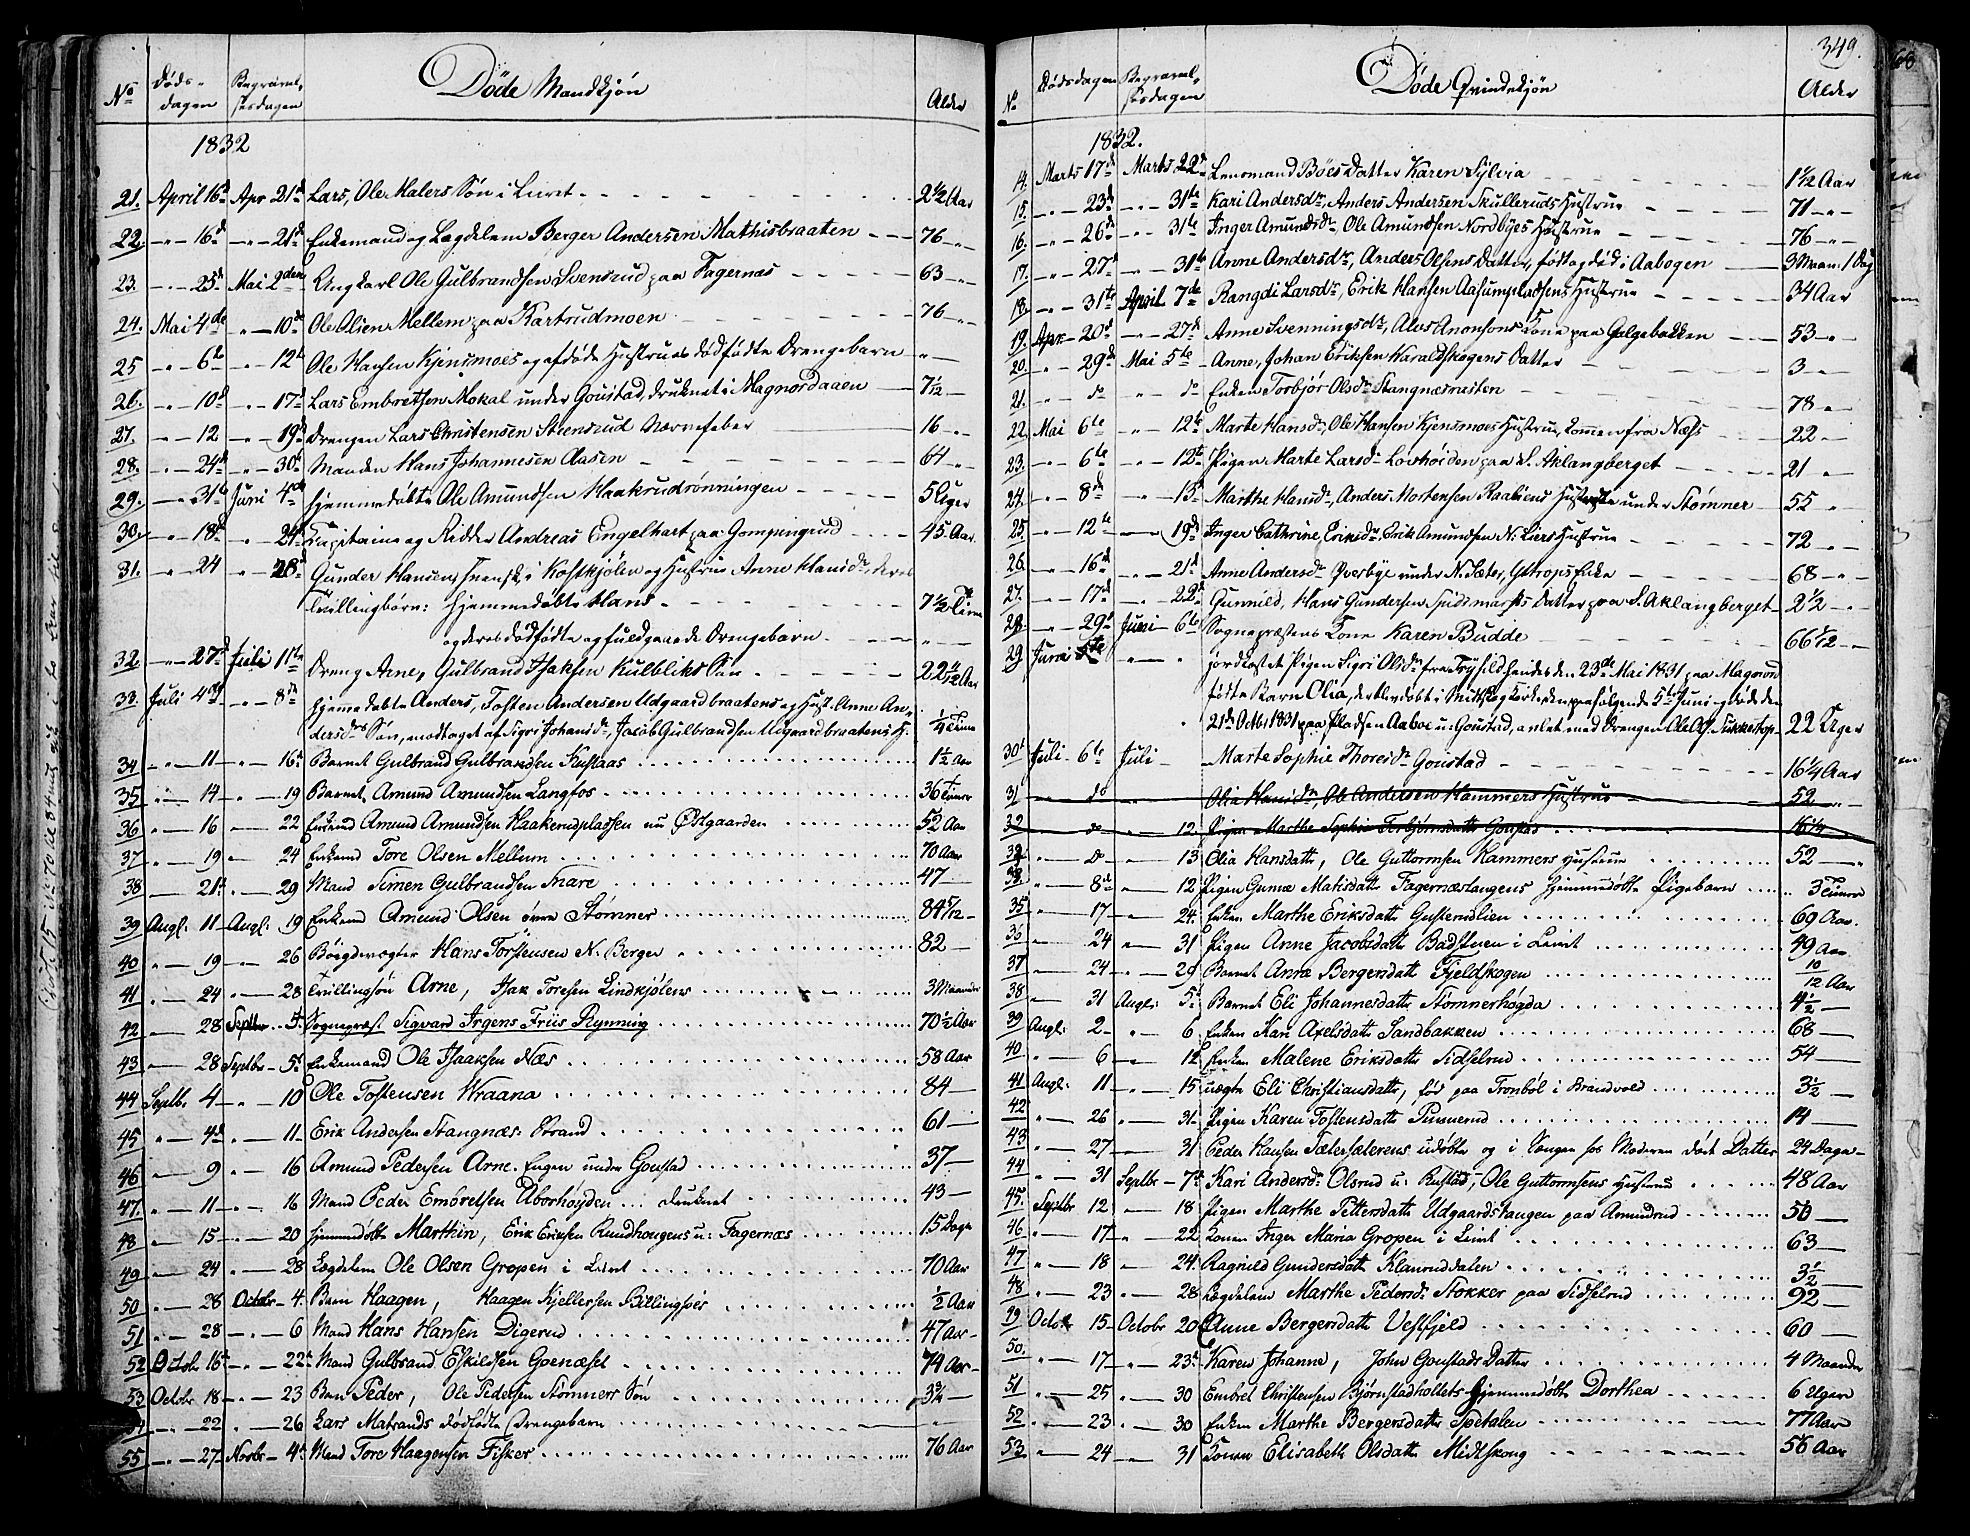 No Døds-dagen Begravel-sesdagen Døde Mandkjøn Alder
1832
21. April 16d Apr 21d Lars, Ole Malers Søn i Lieret 2½ Aar
22. " 16d " 21d Enkemand og Lægdslem Berger Andersen Mathisbraaten 76 "
23. " 25d Mai 2den Ungkarl Ole Gulbrandsen Svensrud paa Fagernæs 63 "
24. Mai 4de " 10de Ole Olsen Mellem paa Kartrudmoen 76 "
25 " 6te " 12te Ole Hansen Kjensmoes og afdøde Hustrues dødfødte Drengebarn "
26. " 10d " 17d Lars Embretsen Mokal under Goustad, druknet i Magnordaaen 7½
27. " 12 " 19d Drengen Lars Christensen Steensrud Nervefeber 16 "
28. " 24d " 30te Manden Hans Johannesen Aasen 64 "
29. " 31te Juni 4de Hjemmedøbte Ole Amundsen Haakrudrønningen 5 Uger
30. " 18d " 24d Capitaine og Ridder Andreas Engelhart paa Gompingrud 45 Aar
31. " 24 " 28d Gunder Hansen, Svensk, i Kostkjølen og Hustrue Anne Hansdr, deres
Tvillingbørn: Hjemmedøbte Hans 7½ Time
og deres dødfødte og fuldgaaede Drengebarn "
32. " 27d Juli 11te Dreng Arne, Gulbrand Isaksen Kulbliks Søn 22 ½ Aar
33. Juli 4de " 8de Hjemmedøbte Anders, Tosten Andersen Udgaardbraatens og Hust. Anne An-
dersdr Søn, modtaget af Sigri Johansdr, Jacob Gulbrandsen Udgaardbraatens H. ¼ Time
34 " 11 " 16de Barnet Gulbrand Gulbrandsen Kustaas 1½ Aar
35 " 14 " 19 Barnet Amund Amundsen Langfos 36 Timer
36 " 16 " 22 Enkemd Amund Amundsen Haakerudplassen nu Østgaarden 52 Aar
37 " 19 " 24 Enkemd Tore Olsen Mellum 70 Aar
38 " 21de " 29 Mand Simen Gulbrandsen Snare 47
39 Augt: 11 Augt: 19 Enkemd Amund Olsen øvre Stømner 84 5/12
40 " 19 " 26 Bøigdevægter Hans Torstensen N: Berger 82
41 " 24 " 28 Tvillingsøn Arne, Isak Toresen Lindkjølens 3 Maaneder
42 " 28 Septbr 5te Sognepræst Sigvard Irgens Friis Rynning 70½ Aar
43 " 28 Septbr 5te Enkemand Ole Isaaksen Næs 58 Aar
44 Septbr 4 " 10 Ole Tostensen Wraana 84
45 " 4de " 11. Erik Andersen Stangnæs-Strand 61
46 " 9 " 16 Amund Pedersen Arne-Engen under Goustad 37
47. " 11 " 16 Mand Peder Embretsen Aborhøgden ... druknet 43
48 " 15 " 20 Hjemmedøbte Marthin, Erik Eriksen Rundhougens u: Fagernæs 15 Dage
49 " 24 " 28 Lægdslem Ole Olsen Gropen i Lieret 70 Aar
50 " 28 Octobr 4. Barn Haagen, Haagen Kjellersen Billingsøes ½ Aar
51 " 28 " 6 Mand Hans Hansen Digerud 47 Aar
52 Octobr 16de " 22de Mand Gulbrand Eskildsen Goenæset 74 Aar
53 Octobr 18 " 23 Barn Peder, Ole Pedersen Stømners Søn 3¾
54 " 22 " 26 Lars Matrands dødfødte Drengebarn "
55 " 27 Novbr 4de Mand Tore Haagensen Fisker 76 Aar
349.
No Dødsdagen Begravel-sesdagen Døde Qvindekjøn Alder
1832.
14. Marts 17d Marts 22d Lensmand Böes Datter Karen Sylvia 1½ Aar
15. " 23d " 31te Kari Andersdr, Anders Andersen Skulleruds Hustrue 71 "
16. " 26d " 31te Inger Amundsdr, Ole Amundsen Nordbyes Hustrue 76 "
17. " 27d " 31te Anne Andersdr, Anders Olsens Datter, født og død i Aabogen 3 Maan: 1 Dag
18. " 31te April 7de Rangdi Larsdr, Erik Hansen Aasumpladsens Hustrue 34 Aar
19. Apr 20d " 27d Anne Svenningsdr, Alvs Anonsens Kone paa Galgebakken 53 "
20. " 29d Mai 5te Anne, Johan Eriksen Karaldskogens Datter 3 "
21. " do " do Enken Torbjør Olsdr Stangnæsnæsten 78 "
22. Mai 6te " 12te Marte Hansdr, Ole Hansen Kjensmoes Hustrue, kommen fra Næss 22 "
23. " 6te " 12te Pigen Marte Larsdr Lovhöiden paa S. Aklangberget 21 "
24. " 8d " 13d Marthe Hansdr, Anders Mortensen Raabiens Hustrue under Stømner 55 "
25. " 12te " 19d Inger Cathrine Eriksdr, Erik Amundsen N: Liers Hustrue 72 "
26. " 16d " 21d Anne Andersdr Qverbye under N. Sæter, Gstrops Enke 68 "
27. " 17d " 22d Gunnild, Hans Gundersen Spidsmarks Datter paa S. Aklangberget 2½ "
28. " 29d Juni 6te Sognepræstens Kone Karen Budde 66 1/12 "
29 Juni 5te " " jordkastet Pigen Sigri Olsdr fra Trysild hendes den 23de Mai 1831 paa Magnor
fødte Barn Olia, der blev døbt i Midtskog Kirke den paafølgende 5te Juni og døde den
21de Octbr 1831 paa Pladsen Aaboe u: Goustad, avlet med Drengen Ole Olsen Sukkestap 22 Uger
30te Juli 6te Juli Marte Sophie Thoresdr Goustad 16¼ Aar
31 " do Olia Hansdr, Ole Andersen Hammers Hustrue 52 "
32 " do " 12 Pigen Marthe Sophie Torbjørnsdatter Goustad 16¼
32 " do " 13 Olia Hansdatter, Ole Guttormsen Hammers Hustrue 52 "
33. " 8de " 12 Pigen Gunnæ Matisdatter Fagernæstangens Hjemmedøbte Pigebarn 3 Timer
35 " 17 " 24. Enken Marthe Eriksdatter Gustenslien 69 Aar.
36 " 24 " 31 Pigen Anne Jacobsdatter Badstuen i Lieret 49 Aar
37 " 24 " 29 Barnet Anne Bergersdatt Fjeldskogen 10/12 Aar
38 " 31 Augt: 5te Barnet Eli Johannesdatter Stømnerhøgda 4½
39 Augt: 2 " 6 Enken Kari Axelsdatter Sandbakken 68
40 " 6 " 12 Enken Malene Eriksdatter Sidselrud 54
41 Augt: 11 " 15 uægte Eli Christiansdatter, før paa Tronbøl i Brandvold 3½
42 " 26 " 31 Pigen Karen Tostensdatter Pinnerud 14
43 " 27 " 31 Peder Hansen Tælesæterens udøbte og i Sengen hos Moderen død Datter 24 Dage
44 " 31 Septbr 7de Kari Andersdr Olsrud u: Rustad, Ole Guttormsens Hustrue 48 Aar
45. Septbr 12 " 18 Pigen Marthe Pittersdatter Udgaardshaugen paa Amundrud 50
46 " 17 " 22 Konen Inger Maria Gropen i Lieret 63
47 " 18 " 24 Ragnild Gundersdatter Klanruddalen 3½
48 " 23 " 28 Lægdslem Marthe Pedersdr Stokker paa Sidselrud 92
49 Octobr 15 Octobr 20 Anne Bergersdatter Vestfjeld 60
50. " 17 " 23de Karen Johanne, John Goustads Datter 4 Maaneder
51 " 25 " 30 Embret Christensen Bjørnstadholtets Hjemmedøbte Dorthea 6 Uger
52 " 23 " 30 Enken Marthe Bergersdatter Spetalen 77 Aar
53 " 24 " 31 Konen Elisabeth Olsdatter Midtskoug 56 Aar